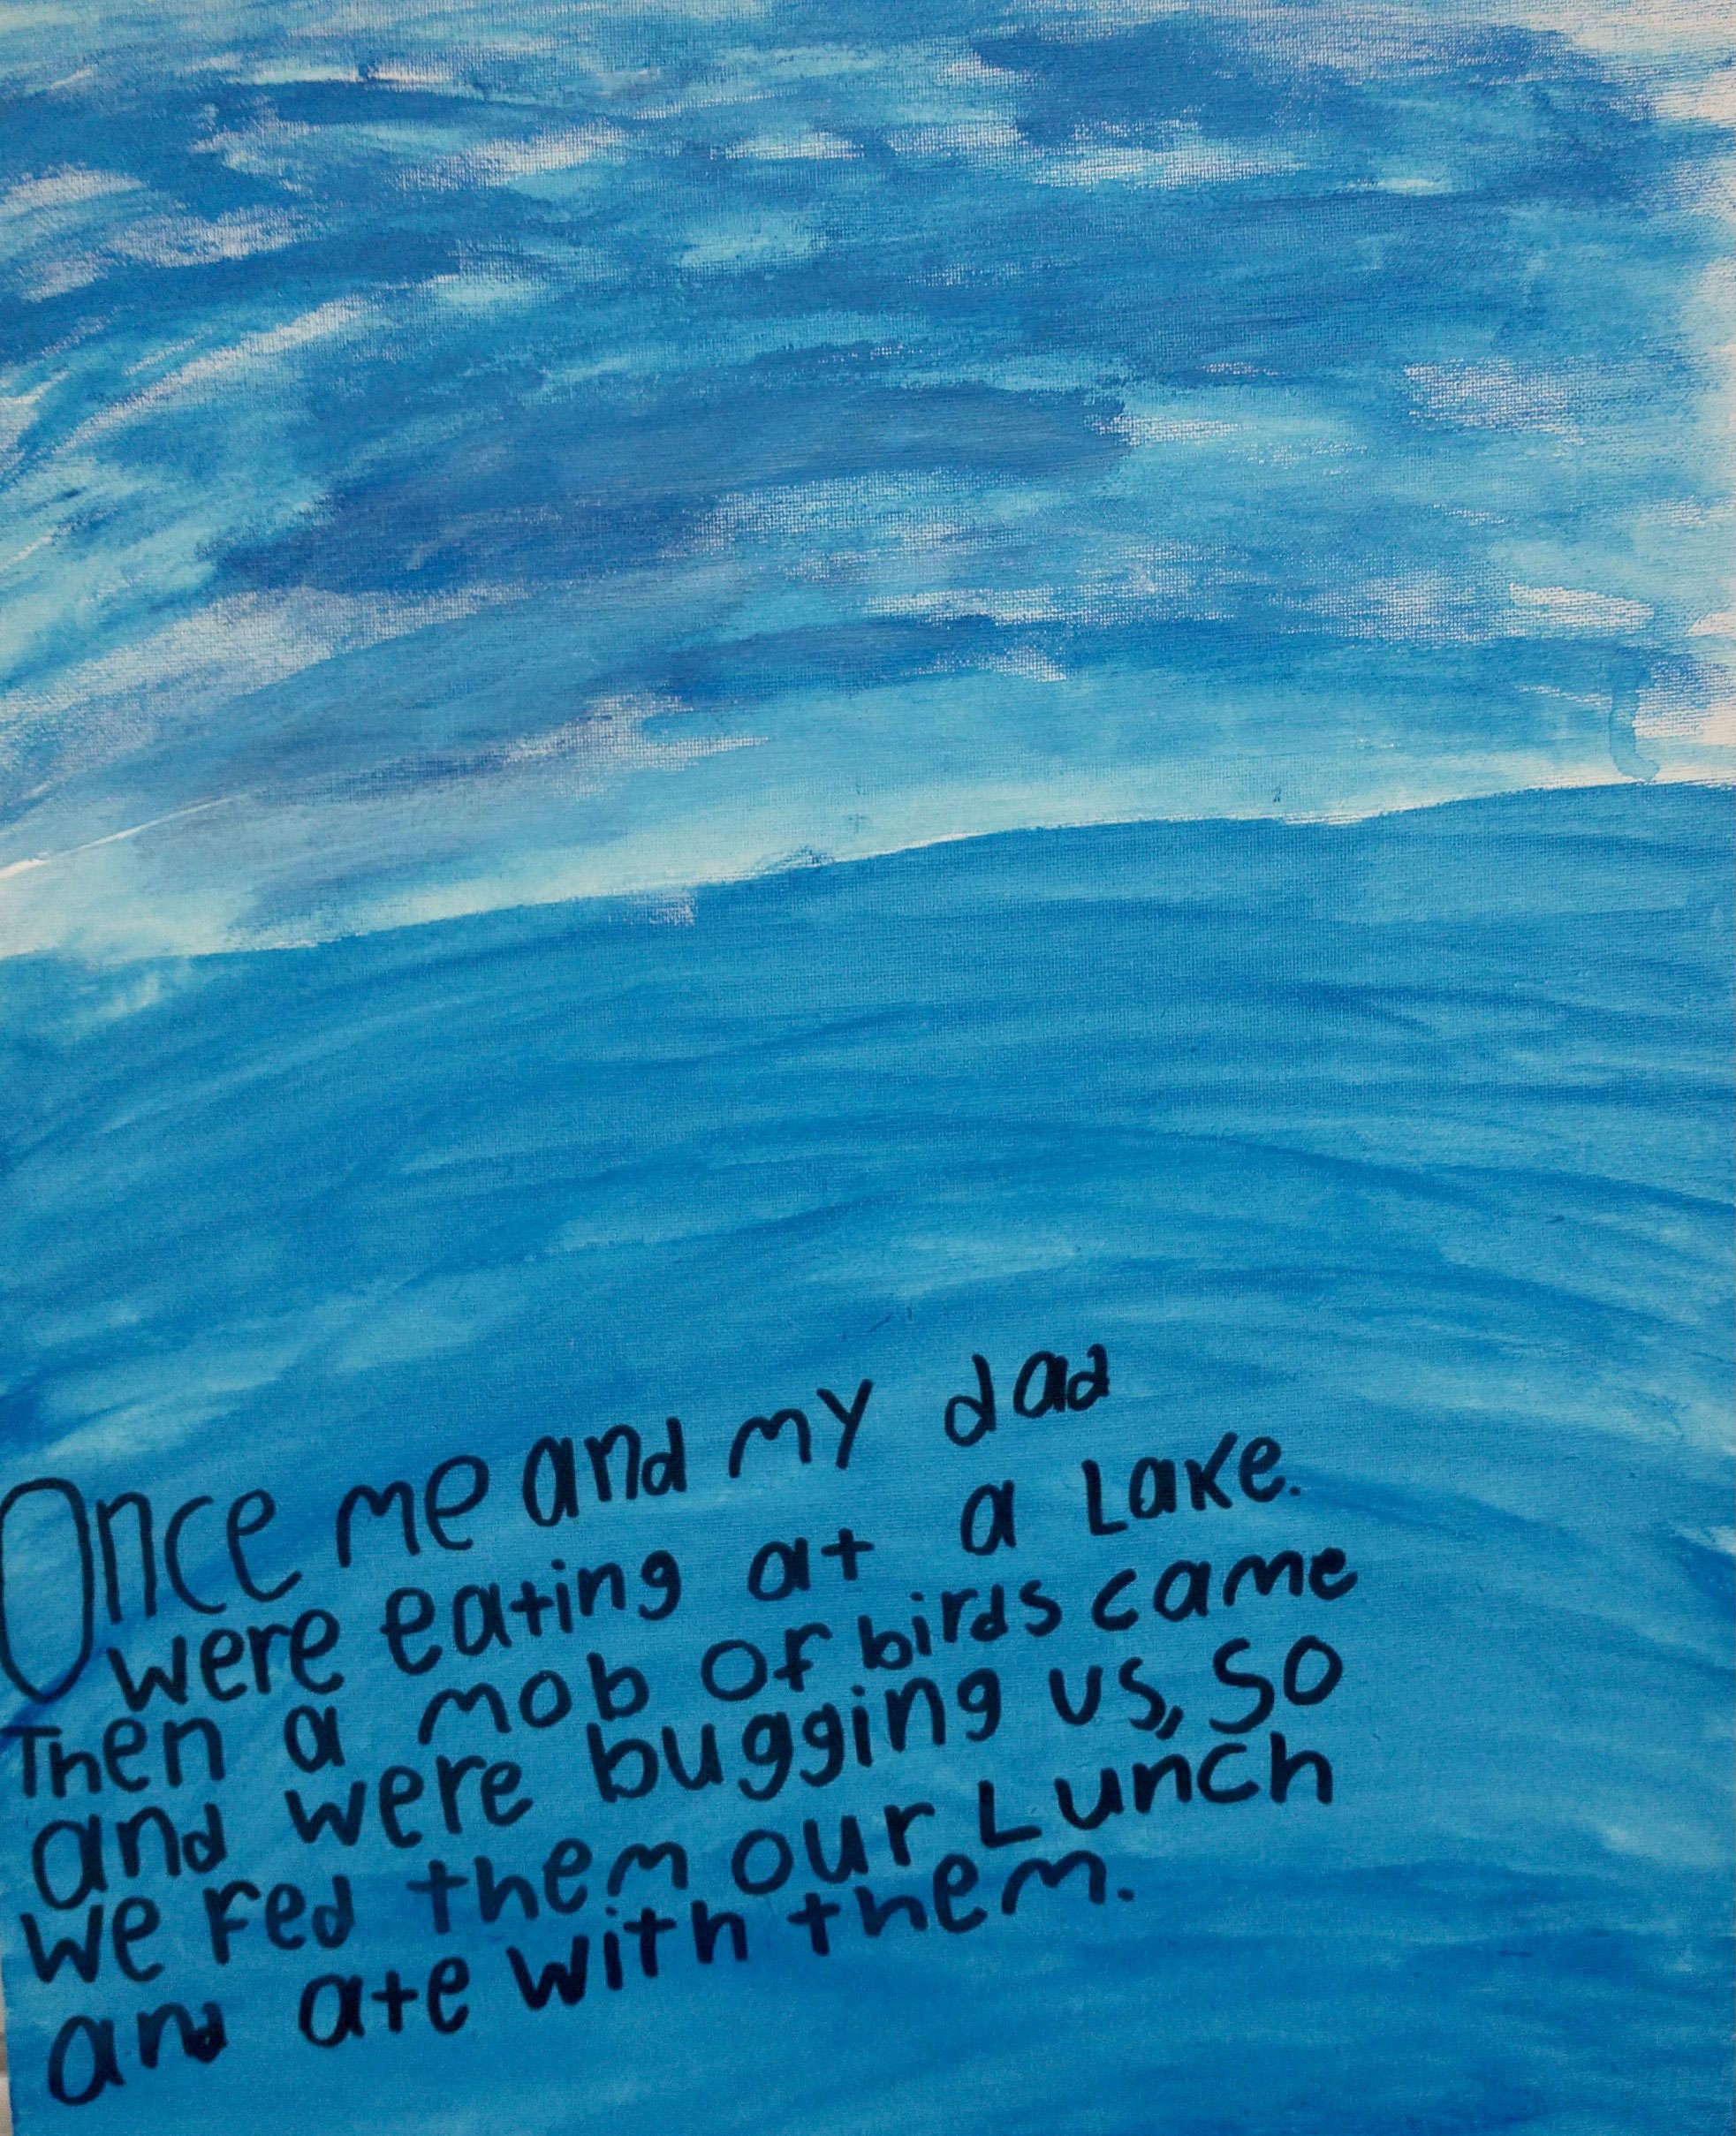 Once me and my dad
were eating at a Lake.
Then a mob of birds came
and were bugging us, so
we fed them our Lunch
and ate with them.